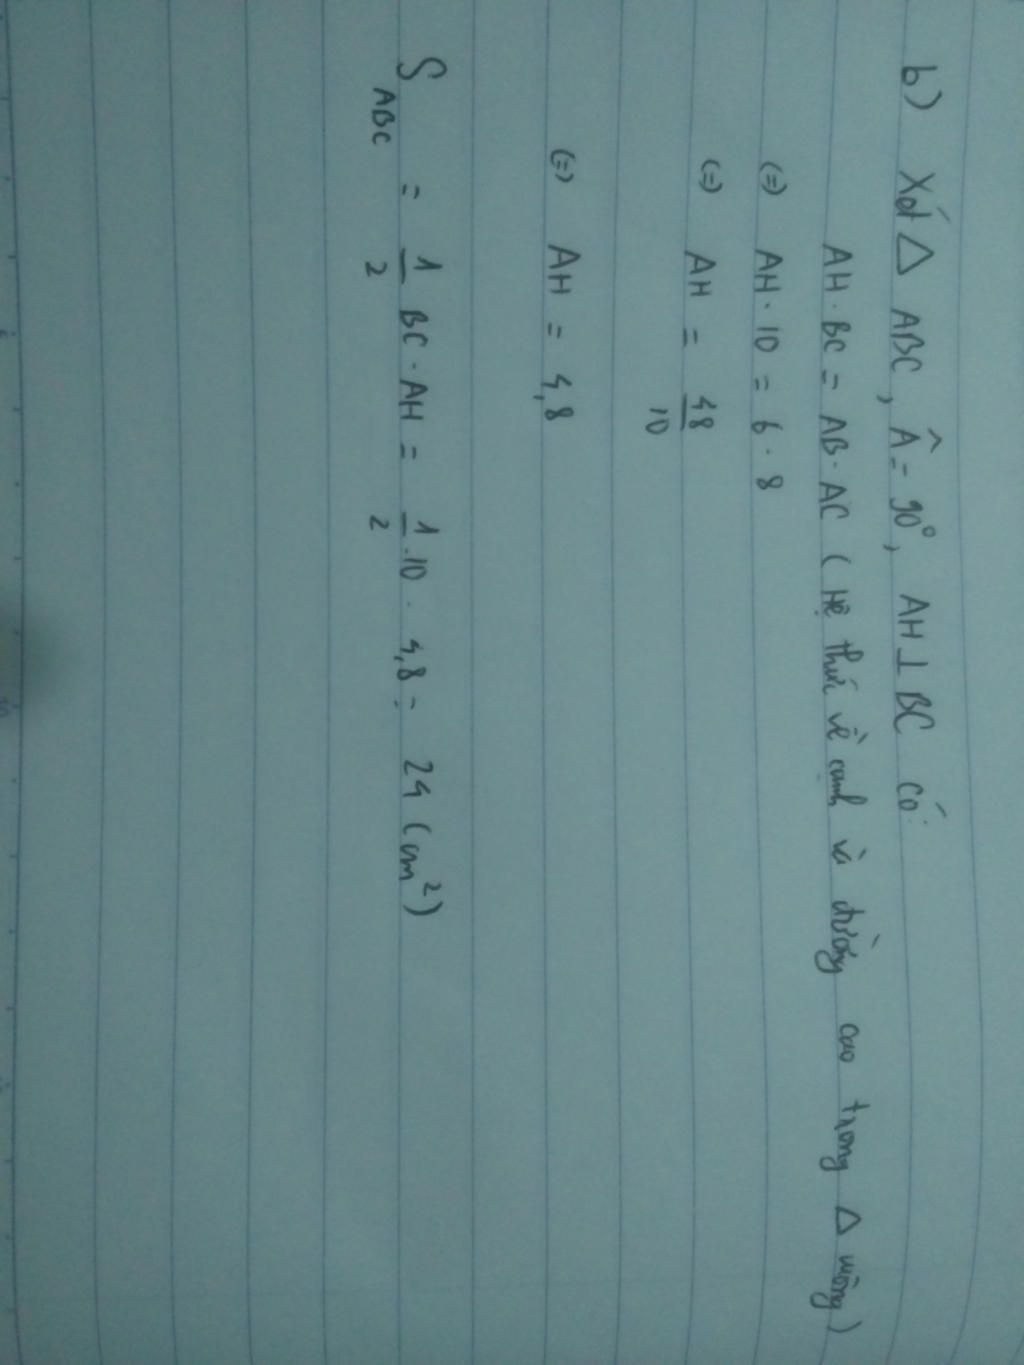 b) Xét △ ABC, Â = 90°, AH ⊥ BC có:
AH . BC = AB . AC ( Hệ thức về cạnh và đường cao trong △ vuông )
(=) AH . 10 = 6 . 8
(=) AH = 48/10
(=) AH = 4,8
S ABC = 1/2 BC . AH = 1/2 . 10 . 4,8 = 24 (cm²)